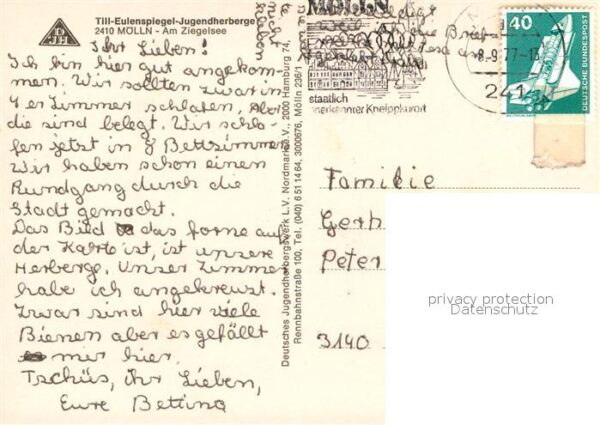 Till-Eulenspiegel-Jugendherberge
2410 MÖLLN - Am Ziegelsee
Ihr Lieben!
Ich bin hier gut angekom-
men. Wir sollten zwar in
4 er Zimmer schlafen. Aber
die sind belegt. Wir schla-
fen jetzt in 8 Bettzimmer
Wir haben schon einen
Rundgang durch die
Stadt gemacht.
Das Bild das forne auf
der Karte ist, ist unsere
Herberge. Unser Zimmer
habe ich angekreuzt.
Zwar sind hier viele
Bienen aber es gefällt
mir hier.
Tschüs, ihr Lieben,
Eure Bettina
nicht
kleben
Deutsches Jugendherbergswerk L.V. Nordmark e.V., 2000 Hamburg 74,
Rennbahnstraße 100, Tel. (040) 6 51 14 64, 3000676, Mölln 236/1
MÖLLN
staatlich
anerkannter Kneippkurort
8.-9.77-18
241
40
DEUTSCHE BUNDESPOST
Familie
Gerh
Peter
3140
privacy protection
Datenschutz